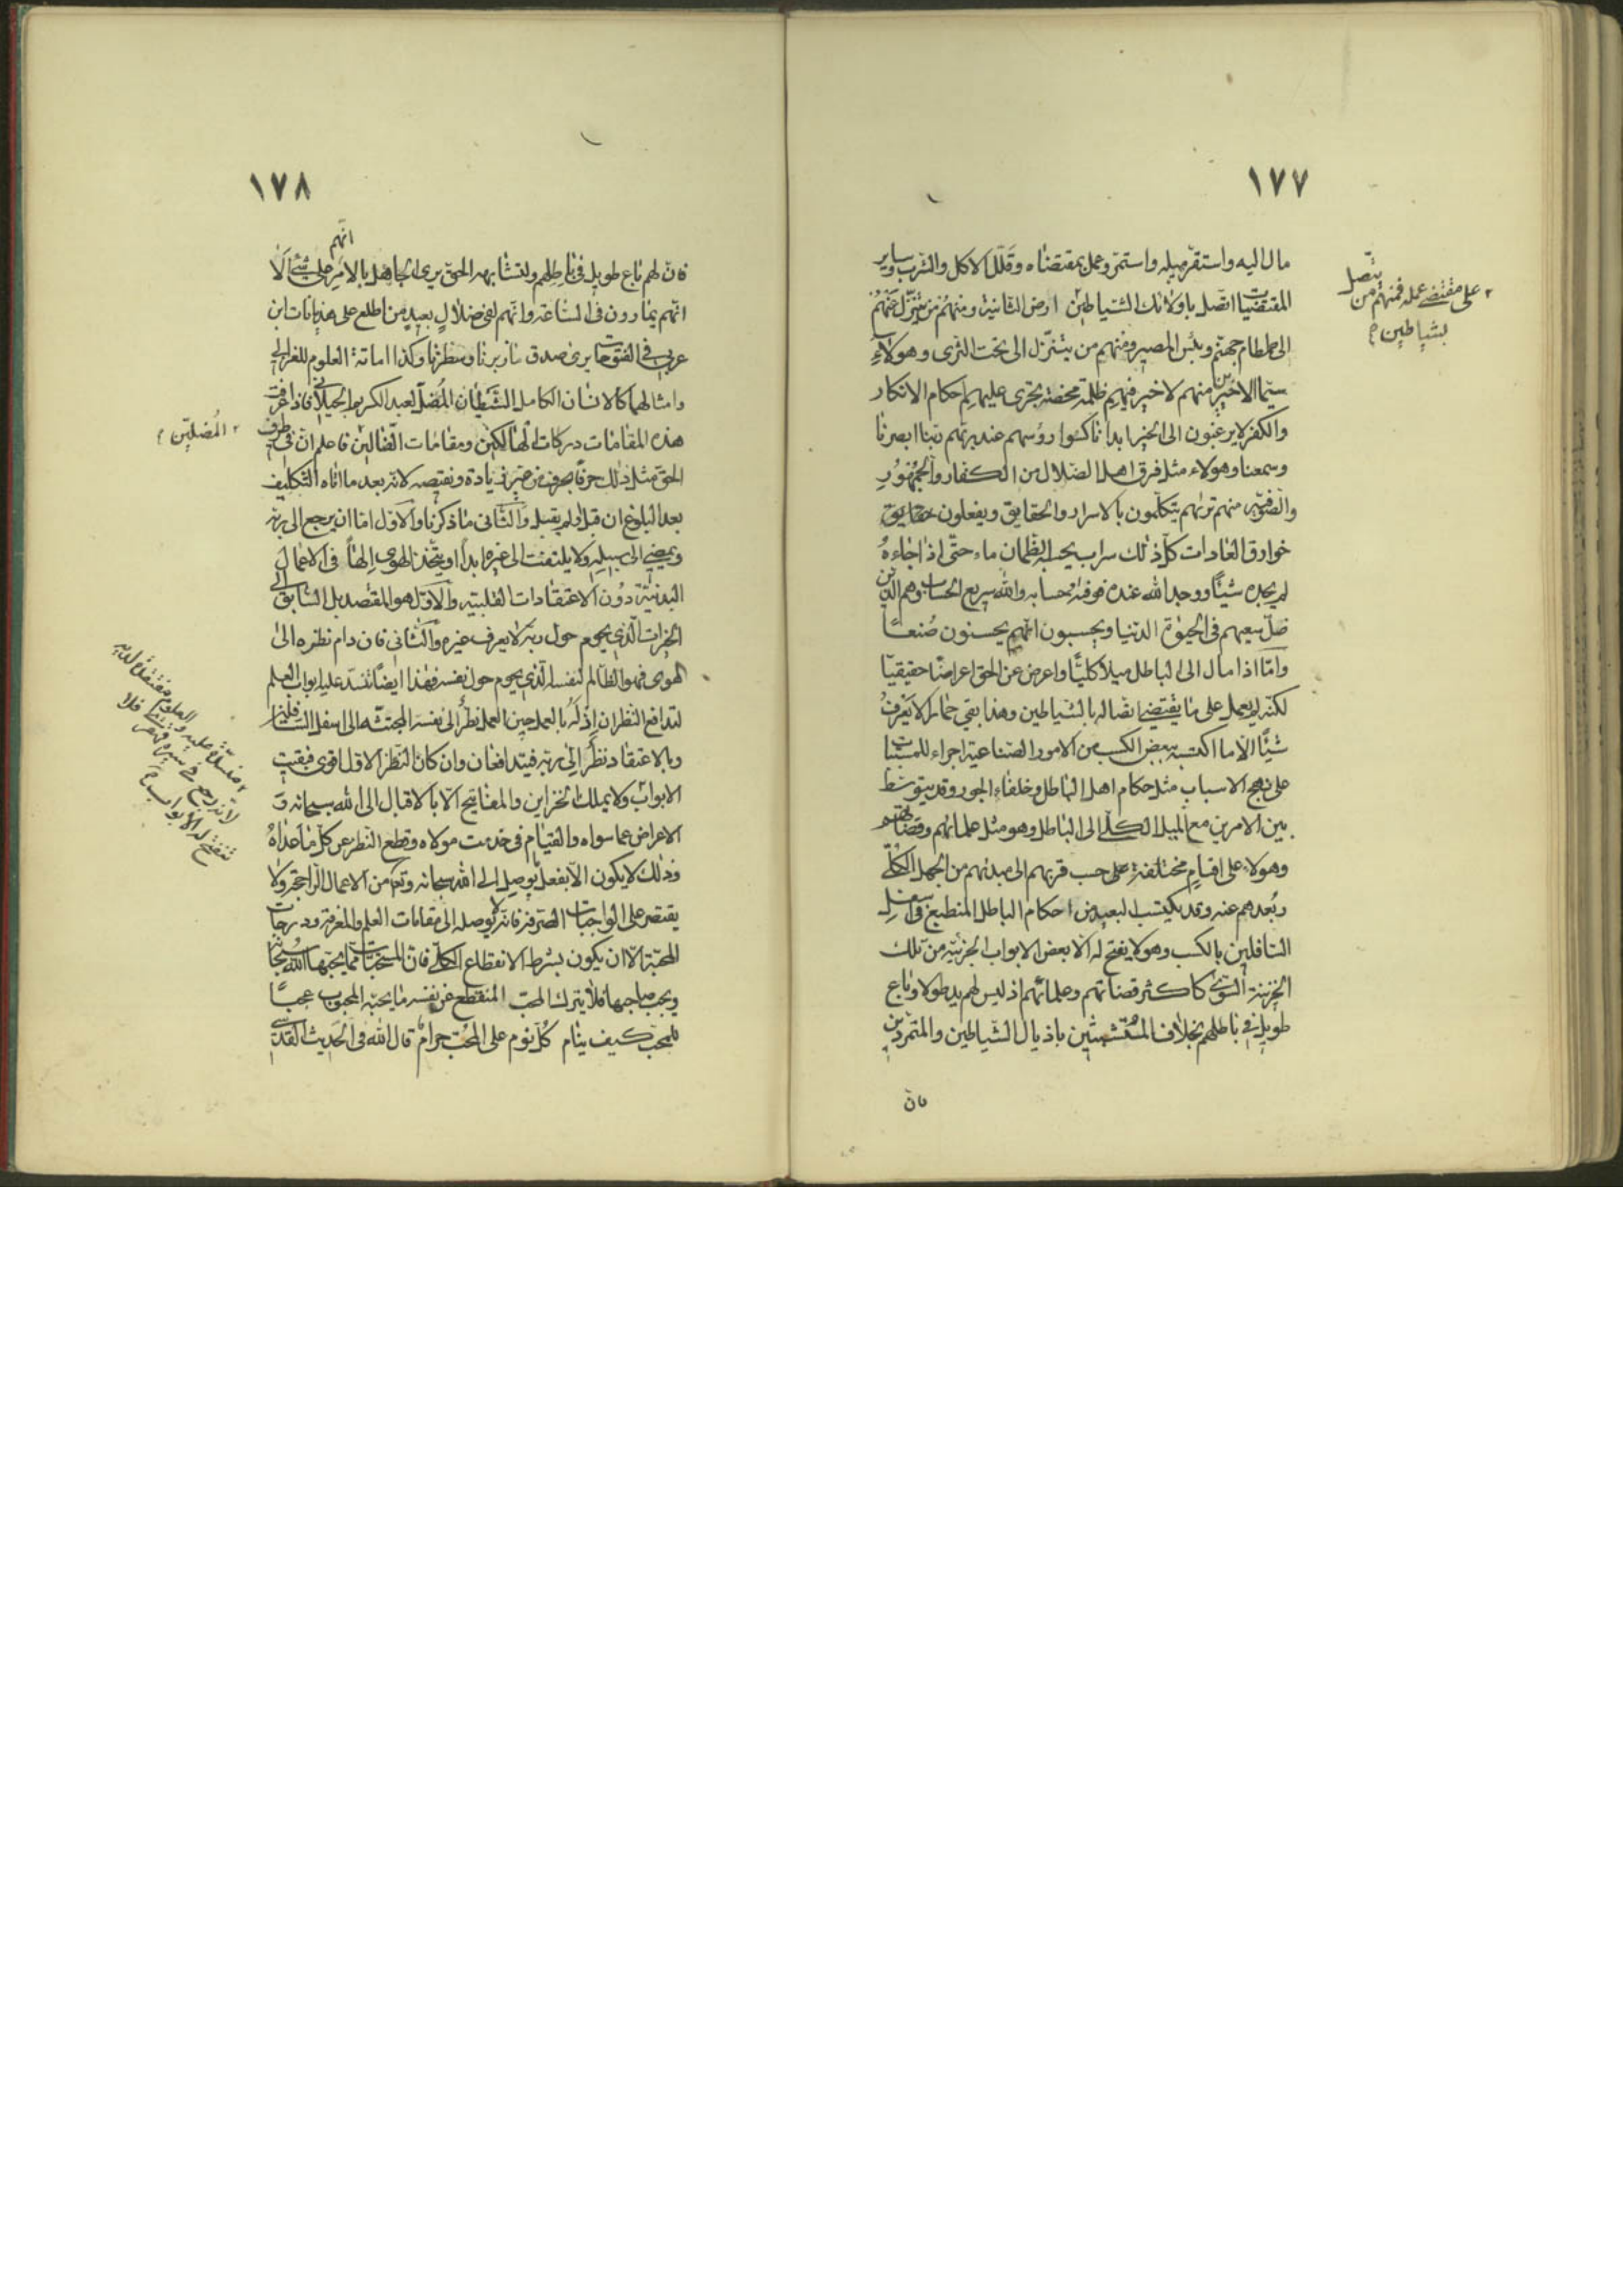 ١٧٧
مال اليه واستقر ميله واستمر وعمل بمقتضاه وقلل الاكل والشرب وساير
المقتضيات اتصل باولائك الشياطين ارض الثانية ومنهم من يتنزل عنهم
الى طمطام جهنم وبئس المصير ومنهم من يتنزل الى تحت الثرى وهولاء
سيما الاخيرين منهم لا خير فيهم ظلمة محضة يجرى عليهم احكام الانكار
والكفر لا يرغبون الى الخير ابدا ناكسوا رؤسهم عند ربهم ربنا ابصرنا
وسمعنا وهولاء مثل فرق اهل الضلال من الكفار والجمهور
والصوفية منهم تريهم يتكلمون بالاسرار والحقايق ويفعلون حقايق
خوارق العادات كل ذلك سراب يحسبه الظمان ماء حتى اذا جاءه
لم يجده شيئا ووجد الله عنده فوفيه حسابه والله سريع الحساب وهم الذين
ضل سعيهم فى الحيوة الدنيا ويحسبون انهم يحسنون صنعا
واما اذا مال الى الباطل ميلا كليا واعرض عن الحق اعراضا حقيقيا
لكنه لم يعمل على ما يقتضى اتصاله بالشياطين وهذا بقى حمارا لا يعرف
شيئا الا ما اكتسبه ببعض الكسب من الامور الصناعية اجراء للمسببات
على نهج الاسباب مثل حكام اهل الباطل وخلفاء الجور وقد يتوسط
بين الامرين مع الميل الكلى الى الباطل وهو مثل علمائهم وقضاتهم
وهولاء على اقسام مختلفة على حسب قربهم الى مبدئهم من الجهل الكلى
وبعدهم عنه وقد يكتسب البعيد من احكام الباطل المنطبع فى اسفل
السافلين بالكسب وهو لا يفتح له الا بعض الابواب الجزئية من تلك
الخزينة السوئى كاكثر قضاتهم وعلمائهم اذ ليس لهم يد طولا وباع
طويل فى باطلهم بخلاف المتشبثين باذيال الشياطين والمتمردين
فان
على مقتضى عمله فمنهم من يتصل
بشياطين
١٧٨
فان لهم باع طويل فى باطلهم ولتشابهه الحق يرى الجاهل بالامر انهم على شئ الا
انهم يمارون فى الساعة وانهم لفى ضلال بعيد من اطلع على هذيانات ابن
عربى فى الفتوحات يرى صدق ما زبرنا وسطرنا وكذا اماتة العلوم للغزالى
وامثالهما كالانسان الكامل الشيطان المضل لعبد الكريم الجيلانى فاذا عرفت
هذه المقامات دركات الهالكين ومقامات الضالين فاعلم ان فى طرف
الحق مثل ذلك حرفا بحرف من غير زيادة ونقيصه لانه بعد ما اتاه التكليف
بعد البلوغ ان قبل او لم يقبل والثانى ما ذكرنا والاول اما ان يرجع الى ربه
ويمضى الى سبيله ولا يلتفت الى غيره ابدا او يتخذ الهوى الها فى الاعمال
البدنية دون الاعتقادات القلبية والاول هو المقتصد بل السابق الى
الخيرات الذى يحوم حول ربه لا يعرف غيره والثانى فان دام نظره الى
الهوى فهو الظالم لنفسه الذى يحوم حول نفسه فهذا ايضا تنسد عليه ابواب العلم
لتدافع النظران اذ له بالعمل حين العمل نظر الى نفسه المجتثة الى اسفل السافلين
وبالاعتقاد نظر الى ربه فيتدافعان وان كان النظر الاول اقوى فبقيت
الابواب ولا يملك الخزاين والمفاتيح الا بالاقبال الى الله سبحانه و
الاعراض عما سواه والقيام فى خدمت مولاه وقطع النظر عن كل ما عداه
وذلك لا يكون الا بفعل ما يوصل الى الله سبحانه وتعالى من الاعمال الراجحة ولا
يقتصر على الواجبات الصرفة فانه لا يوصله الى مقامات العلم والمعرفة ودرجات
المحبة الا ان يكون بشرط الانقطاع الكلى فان المستحبات مما يحبها الله سبحانه
ويحب صاحبها فلا يترك المحب المنقطع عن نفسه ما يحبه المحبوب عجبا
للمحب كيف ينام كل نوم على المحب حرام قال الله فى الحديث القدسى
المضلين
منسدة عليه والعلوم مقفلة لديه
لانه رجع فى سيره فلا
تنفتح له الابواب